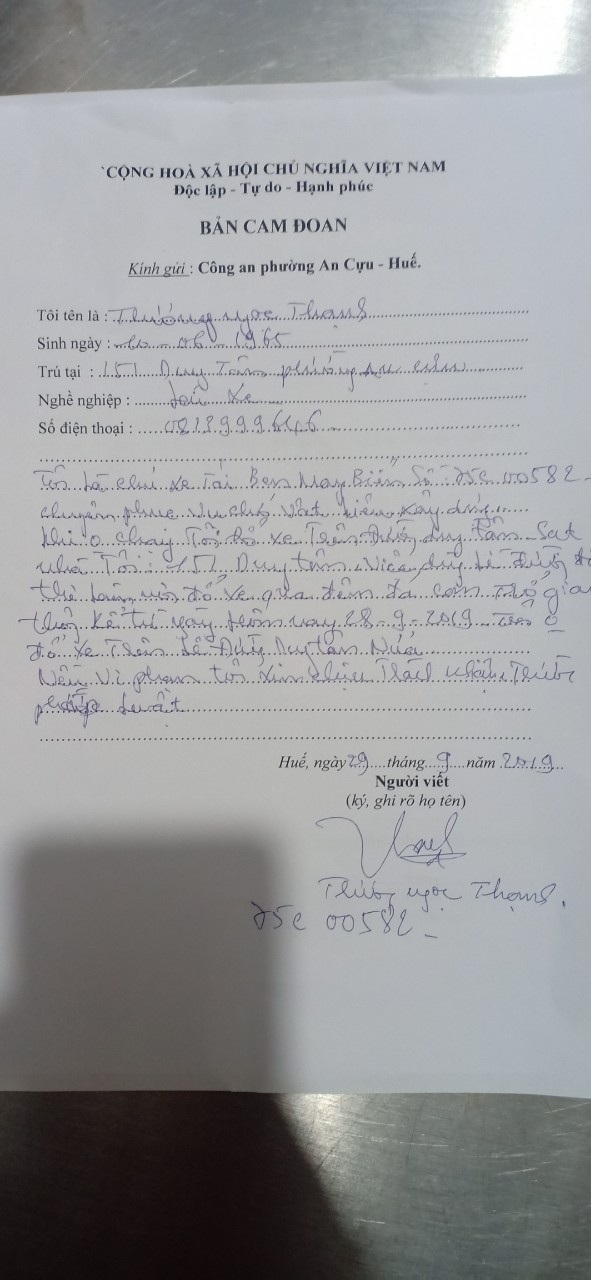 `CỘNG HOÀ XÃ HỘI CHỦ NGHĨA VIỆT NAM
Độc lập - Tự do - Hạnh phúc
BẢN CAM ĐOAN
Kính gửi : Công an phường An Cựu - Huế.
Tôi tên là : Ngọc Thạnh
Sinh ngày : 1965
Trú tại : 151 Duy Tân phường An Cựu
Nghề nghiệp : Lái Xe
Số điện thoại :
Tôi là chủ xe Tải Ben May Biển Số : 75C 00582 -
chuyên phục vụ chở Vật liệu xây dựng
Khi o chạy Tôi đỗ xe Trên Đường Duy Tân Sat
nhà Tôi : 151 Duy Tân. lề đường
đỗ xe qua đêm
Kể từ ngày hôm nay 28 - 9 - 2019 o
đỗ xe Trên Lề Đường Duy Tân Nữa
Nếu Vi phạm tôi xin chịu Trách nhiệm Trước
pháp luật
Huế, ngày 29 tháng 9 năm 2019
Người viết
(ký, ghi rõ họ tên)
Ngọc Thạnh.
75C 00582 -